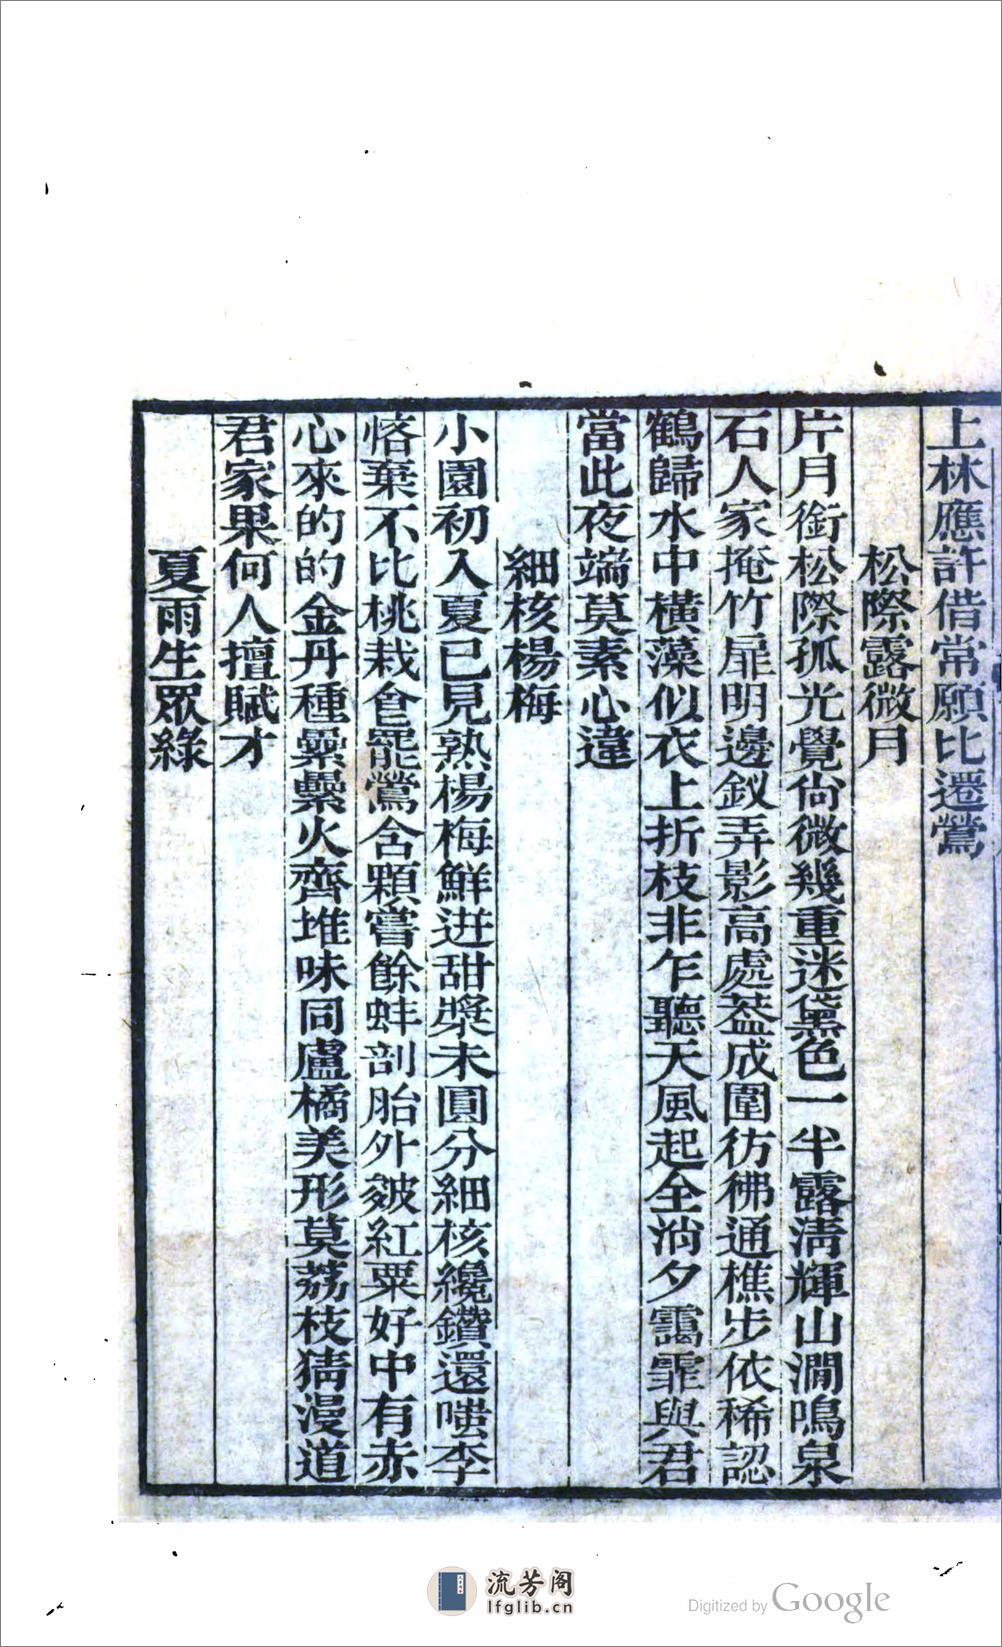 上林應許借常願比遷鶯
松際露微月
片月銜松際孤光覺尙微幾重迷黛色一半露淸輝山澗鳴泉
石人家掩竹扉明邊釵弄影高處葢成圍彷彿通樵步依稀認
鶴歸水中橫藻似衣上折枝非乍聽天風起全消夕靄霏與君
當此夜端莫素心違
細核楊梅
小園初入夏已見熟楊梅鮮迸甜漿未圓分細核纔鑽還嗤李
恡棄不比桃栽倉罷鶯含顆嘗餘蚌剖胎外皴紅粟好中有赤
心來的的金丹種纍纍火齊堆味同盧橘美形莫荔枝猜漫道
君家果何人擅賦才
夏雨生眾綠
流芳阁
lfglib.cn
Digitized by Google